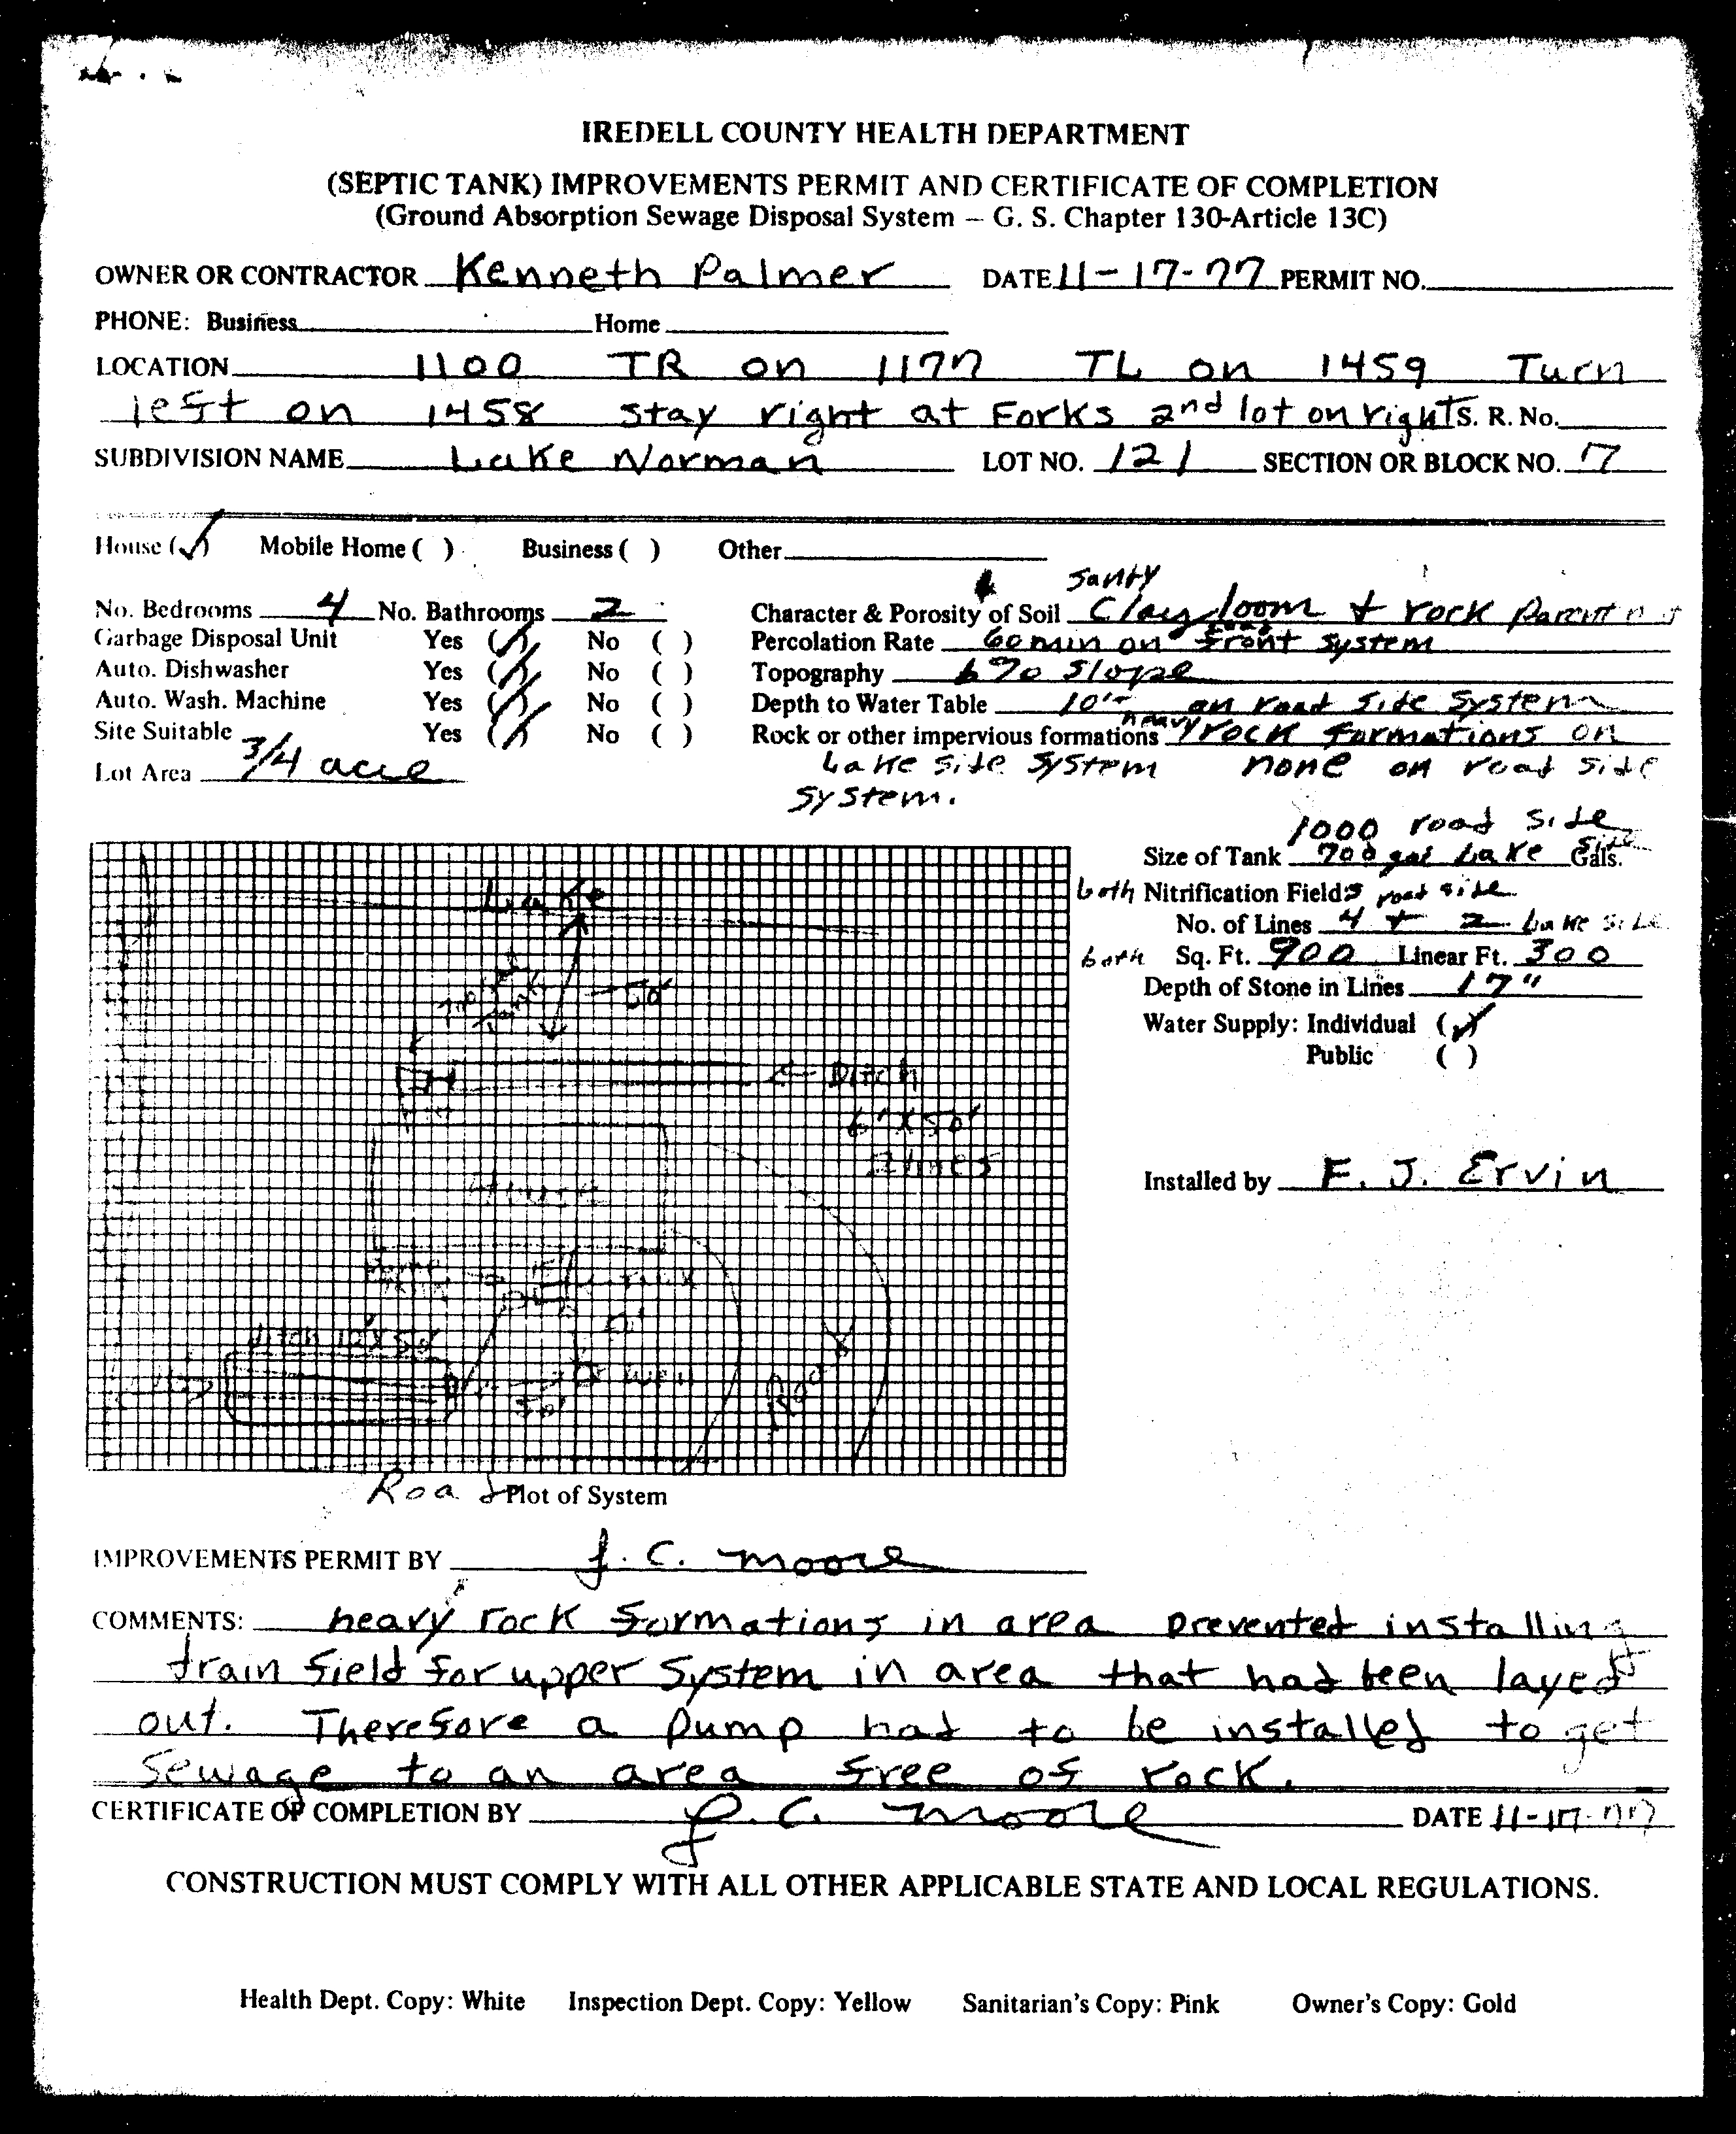 IREDELL COUNTY HEALTH DEPARTMENT
(SEPTIC TANK) IMPROVEMENTS PERMIT AND CERTIFICATE OF COMPLETION
(Ground Absorption Sewage Disposal System – G. S. Chapter 130-Article 13C)
OWNER OR CONTRACTOR Kenneth Palmer DATE 11-17-77 PERMIT NO.
PHONE: Business Home
LOCATION 1100 TR on 1177 TL on 1459 Turn
left on 1458 stay right at Forks 2nd lot on right S. R. No.
SUBDIVISION NAME Lake Norman LOT NO. 121 SECTION OR BLOCK NO. 7
House (✓) Mobile Home ( ) Business ( ) Other
No. Bedrooms 4 No. Bathrooms 2
Garbage Disposal Unit Yes (✓) No ( )
Auto. Dishwasher Yes (✓) No ( )
Auto. Wash. Machine Yes (✓) No ( )
Site Suitable Yes (✓) No ( )
Lot Area 3/4 acre
sandy
Character & Porosity of Soil Clay loom + rock
Percolation Rate 60 min on front system
Topography 6% slope
Depth to Water Table 10' on road side system
Rock or other impervious formations heavy rock formations on
Lake side system none on road side
system.
1000 road side
Size of Tank 700 gal Lake side Gals.
both Nitrification Fields road side
No. of Lines 4 + 2 Lake side
both Sq. Ft. 900 Linear Ft. 300
Depth of Stone in Lines 17"
Water Supply: Individual (✓)
Public ( )
Installed by F. J. Ervin
Lake
50'
← Ditch
6' X 50'
2 lines
House
Ditch 12' X 50'
well
50'
Road
Plot of System
IMPROVEMENTS PERMIT BY J. C. Moore
COMMENTS: heavy rock formations in area prevented installing
drain field for upper system in area that had been layed
out. Therefore a pump had to be installed to get
sewage to an area free of rock.
CERTIFICATE OF COMPLETION BY J. C. Moore DATE 11-17-77
CONSTRUCTION MUST COMPLY WITH ALL OTHER APPLICABLE STATE AND LOCAL REGULATIONS.
Health Dept. Copy: White Inspection Dept. Copy: Yellow Sanitarian's Copy: Pink Owner's Copy: Gold